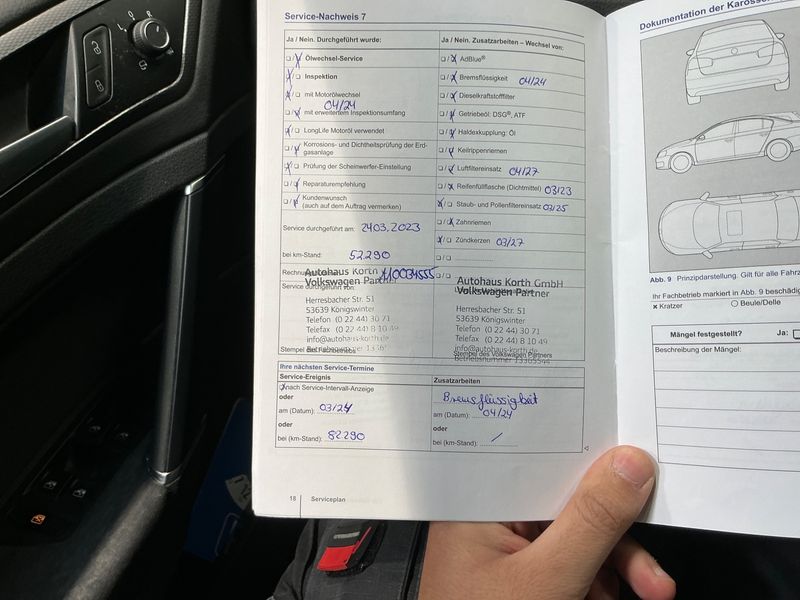 Service-Nachweis 7
Ja / Nein. Durchgeführt wurde:
Ölwechsel-Service
Inspektion
mit Motorölwechsel
04/24
mit erweitertem Inspektionsumfang
LongLife Motoröl verwendet
Korrosions- und Dichtheitsprüfung der Erd-
gasanlage
Prüfung der Scheinwerfer-Einstellung
Reparaturempfehlung
Kundenwunsch
(auch auf dem Auftrag vermerken)
Service durchgeführt am: 24.03.2023
bei km-Stand: 52.290
Autohaus Korth GmbH
Volkswagen Partner
Service durchgeführt von:
Herresbacher Str. 51
53639 Königswinter
Telefon (0 22 44) 30 71
Telefax (0 22 44) 8 10 49
info@autohaus-korth.de
Stempel des Fachbetriebs
Ja / Nein. Zusatzarbeiten – Wechsel von:
AdBlue®
Bremsflüssigkeit 04/24
Dieselkraftstofffilter
Getriebeöl: DSG®, ATF
Haldexkupplung: Öl
Keilrippenriemen
Luftfiltereinsatz 04/27
Reifenfüllflasche (Dichtmittel) 03/23
Staub- und Pollenfiltereinsatz 03/25
Zahnriemen
Zündkerzen 03/27
Autohaus Korth GmbH
Volkswagen Partner
Herresbacher Str. 51
53639 Königswinter
Telefon (0 22 44) 30 71
Telefax (0 22 44) 8 10 49
info@autohaus-korth.de
Stempel des Volkswagen Partners
Ihre nächsten Service-Termine
Service-Ereignis
nach Service-Intervall-Anzeige
oder
am (Datum): 03/24
oder
bei (km-Stand): 82.290
Zusatzarbeiten
Bremsflüssigkeit
am (Datum): 04/24
oder
bei (km-Stand): /
18 Serviceplan
Dokumentation der
Abb. 9 Prinzipdarstellung. Gilt für alle
Ihr Fachbetrieb markiert in Abb. 9
× Kratzer ○ Beule/Delle
Mängel festgestellt? Ja:
Beschreibung der Mängel: